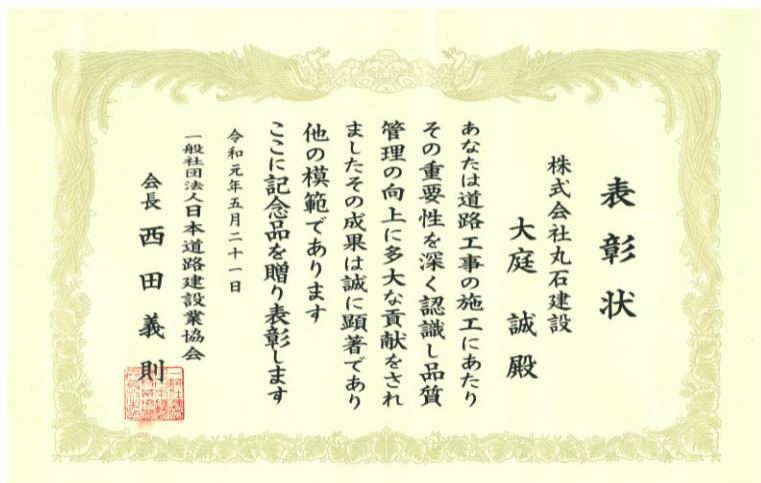 表彰状
株式会社丸石建設
大庭 誠 殿
あなたは道路工事の施工にあたり
その重要性を深く認識し品質
管理の向上に多大な貢献をされ
ましたその成果は誠に顕著であり
他の模範であります
ここに記念品を贈り表彰します
令和元年五月二十一日
一般社団法人日本道路建設業協会
会長 西田義則